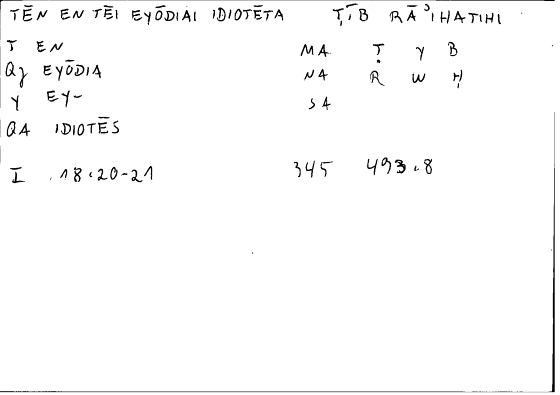 TĒN EN TĒI EYŌDIAI IDIOTĒTA ṬĪB RĀʾIḤATIHI
T EN MA Ṭ Y B
QZ EYŌDIA NA R W Ḥ
Y EY- SA
QA IDIOTĒS
I 18.20-21 345 493.8